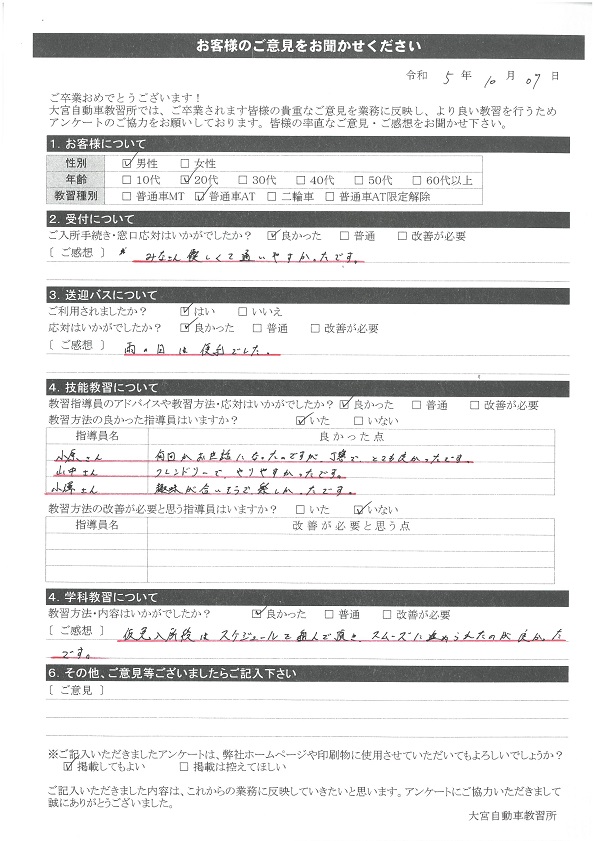 お客様のご意見をお聞かせください
令和 5 年 10 月 07 日
ご卒業おめでとうございます！
大宮自動車教習所では、ご卒業されます皆様の貴重なご意見を業務に反映し、より良い教習を行うため
アンケートのご協力をお願いしております。皆様の率直なご意見・ご感想をお聞かせ下さい。
1. お客様について
性別 ☑男性 □女性
年齢 □10代 ☑20代 □30代 □40代 □50代 □60代以上
教習種別 □普通車MT ☑普通車AT □二輪車 □普通車AT限定解除
2. 受付について
ご入所手続き・窓口応対はいかがでしたか？ ☑良かった □普通 □改善が必要
[ ご感想 ] みなさん優しくて通いやすかったです。
3. 送迎バスについて
ご利用されましたか？ ☑はい □いいえ
応対はいかがでしたか？ ☑良かった □普通 □改善が必要
[ ご感想 ] 雨の日は便利でした。
4. 技能教習について
教習指導員のアドバイスや教習方法・応対はいかがでしたか？ ☑良かった □普通 □改善が必要
教習方法の良かった指導員はいますか？ ☑いた □いない
指導員名 良かった点
小原さん 何回かお世話になったのですが丁寧で、とても良かったです。
山中さん フレンドリーで、やりやすかったです。
さん 趣味が合いそうで楽しかったです。
教習方法の改善が必要と思う指導員はいますか？ □いた ☑いない
指導員名 改善が必要と思う点
4. 学科教習について
教習方法・内容はいかがでしたか？ ☑良かった □普通 □改善が必要
[ ご感想 ] 仮免入所後はスケジュールを組んで頂き、スムーズに進められたのが良かった
です。
6. その他、ご意見等ございましたらご記入下さい
[ ご意見 ]
※ご記入いただきましたアンケートは、弊社ホームページや印刷物に使用させていただいてもよろしいでしょうか？
☑掲載してもよい □掲載は控えてほしい
ご記入いただきました内容は、これからの業務に反映していきたいと思います。アンケートにご協力いただきまして
誠にありがとうございました。
大宮自動車教習所